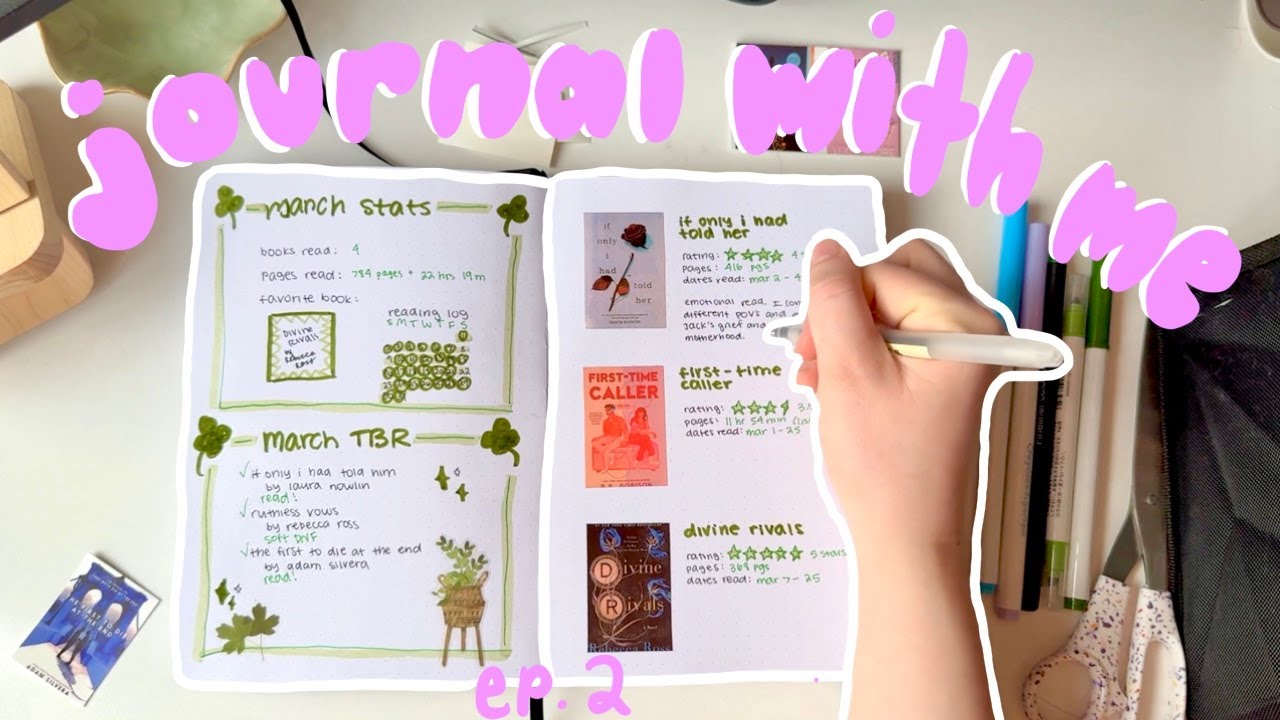 journal with me
march stats
books read: 4
pages read: 784 pages + 22 hrs 19 m
favorite book:
Divine
Rivals
by
Rebecca
Ross
reading log
S M T W T F S
march TBR
✓ if only i had told him
by laura nowlin
read!
✓ ruthless vows
by rebecca ross
soft DNF
✓ the first to die at the end
by adam silvera
read!
if
only
i
had
told
her
if only i had
told her
rating: ☆☆☆☆ 4
pages: 416 pgs
dates read: mar 2 -
emotional read. I
different POV's and
Jack's grief and
motherhood.
FIRST-TIME
CALLER
first-time
caller
rating:
pages: 11 hr 54 min
dates read: mar 1 - 25
Divine
Rivals
A Novel
Rebecca Ross
divine rivals
rating: ☆☆☆☆☆ 5 stars
pages: 368 pgs
dates read: mar 7 - 25
ADAM SILVERA
ep. 2